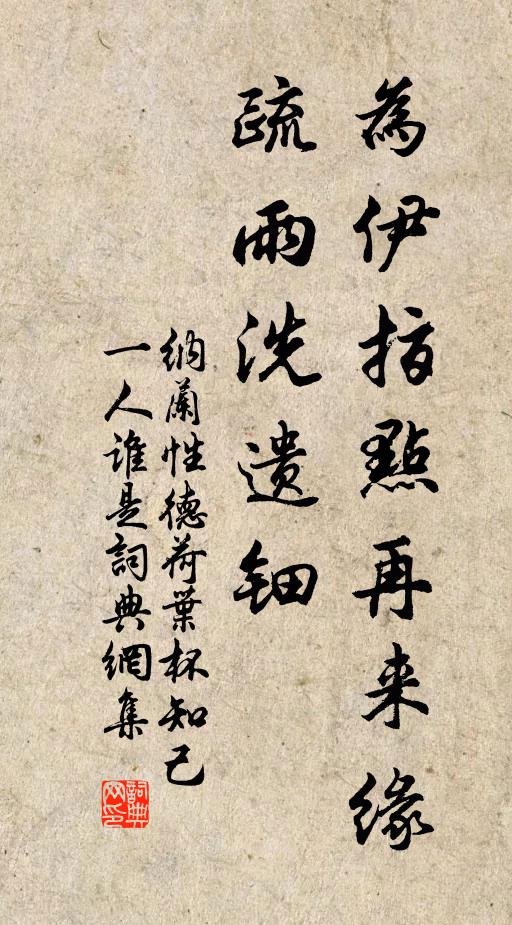 為伊指點再来緣
疏雨洗遺鈿
納蘭性德荷葉杯知己
一人誰是詞典網集
詞典
网印